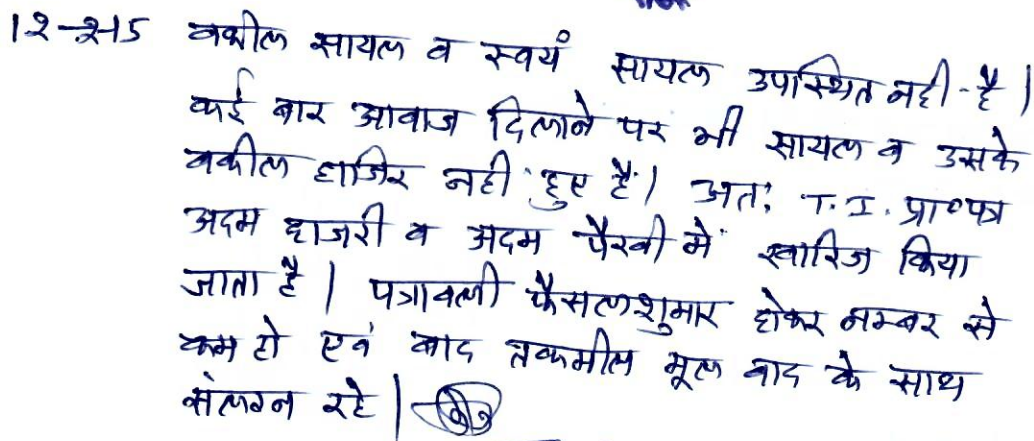 12-2-15 वकील सायल व स्वयं सायल उपस्थित नही है।
कई बार आवाज दिलाने पर भी सायल व उसके
वकील हाजिर नही हुए है। अतः T.I. प्रा०पत्र
अदम हाजरी व अदम पैरवी में खारिज किया
जाता है। पत्रावली फैसलशुमार होकर नम्बर से
कम हो एवं बाद तकमील मूल वाद के साथ
संलग्न रहे।